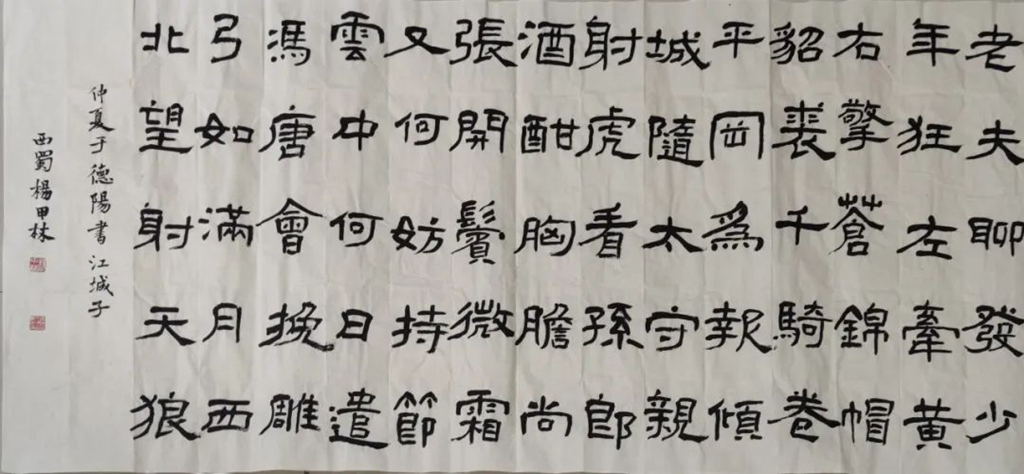 老夫聊發少
年狂左牽黃
右擎蒼錦帽
貂裘千騎卷
平岡爲報傾
城隨太守親
射虎看孫郎
酒酣胸膽尚
張開鬢微霜
又何妨持節
雲中何日遣
馮唐會挽雕
弓如滿月西
北望射天狼
仲夏于德陽書江城子
西蜀楊甲林